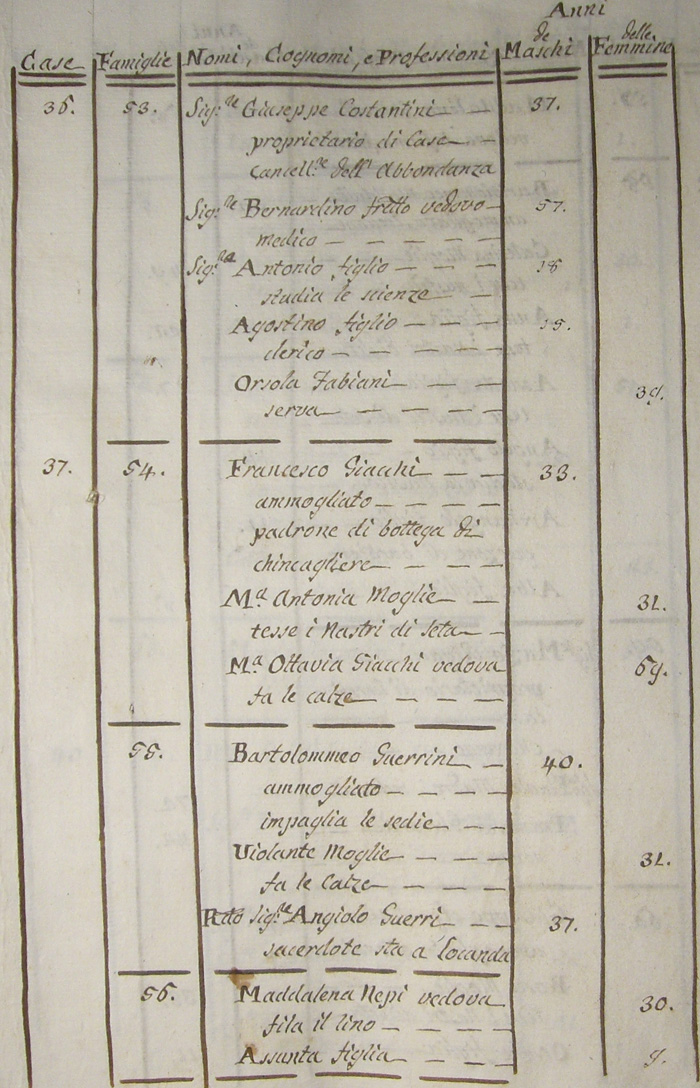 Anni
Case Famiglie Nomi, Cognomi, e Professioni de Maschi delle Femmine
36. 53. Sig:re Giuseppe Costantini 37.
proprietario di Case
Cancell:re dell' Abbondanza
Sig:re Bernardino frãtto vedovo 57.
medico
Sig:re Antonio figlio 18
studia le scienze
Agostino figlio 15.
clerico
Orsola Fabiani 39.
serva
37. 54. Francesco Giacchi 33.
ammogliato
padrone di bottega di
chincagliere
M.a Antonia Moglie 31.
tesse i Nastri di Seta
M.a Ottavia Giacchi vedova 69.
fa le calze
55. Bartolommeo Guerrini 40.
ammogliato
impaglia le sedie
Violante Moglie 31.
fa le Calze
Rdo Sig:re Angiolo Guerri 37.
sacerdote sta a locanda
56. Maddalena Nepi vedova 30.
fila il lino
Assunta figlia 9.